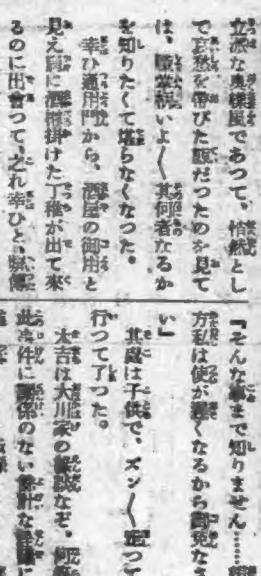 立派な奥様風であつて、悄然とし
て哀愁を帯びた顔だつたのを見て
は、いよ〱其何者なるか
を知りたくて堪らなくなつた。
幸ひ通用門から、酒屋の御用と
見え肩に掛けた丁稚が出て來
るのに出會つて、之れ幸ひと、
『そんな事まで知りません……
方私は使が遅くなるから御免なさ
い』
其處は子供で、ズン〱走つて
行つて了つた。
太吉は大川家の なぞ、何
此事件に關係のない餘計な に